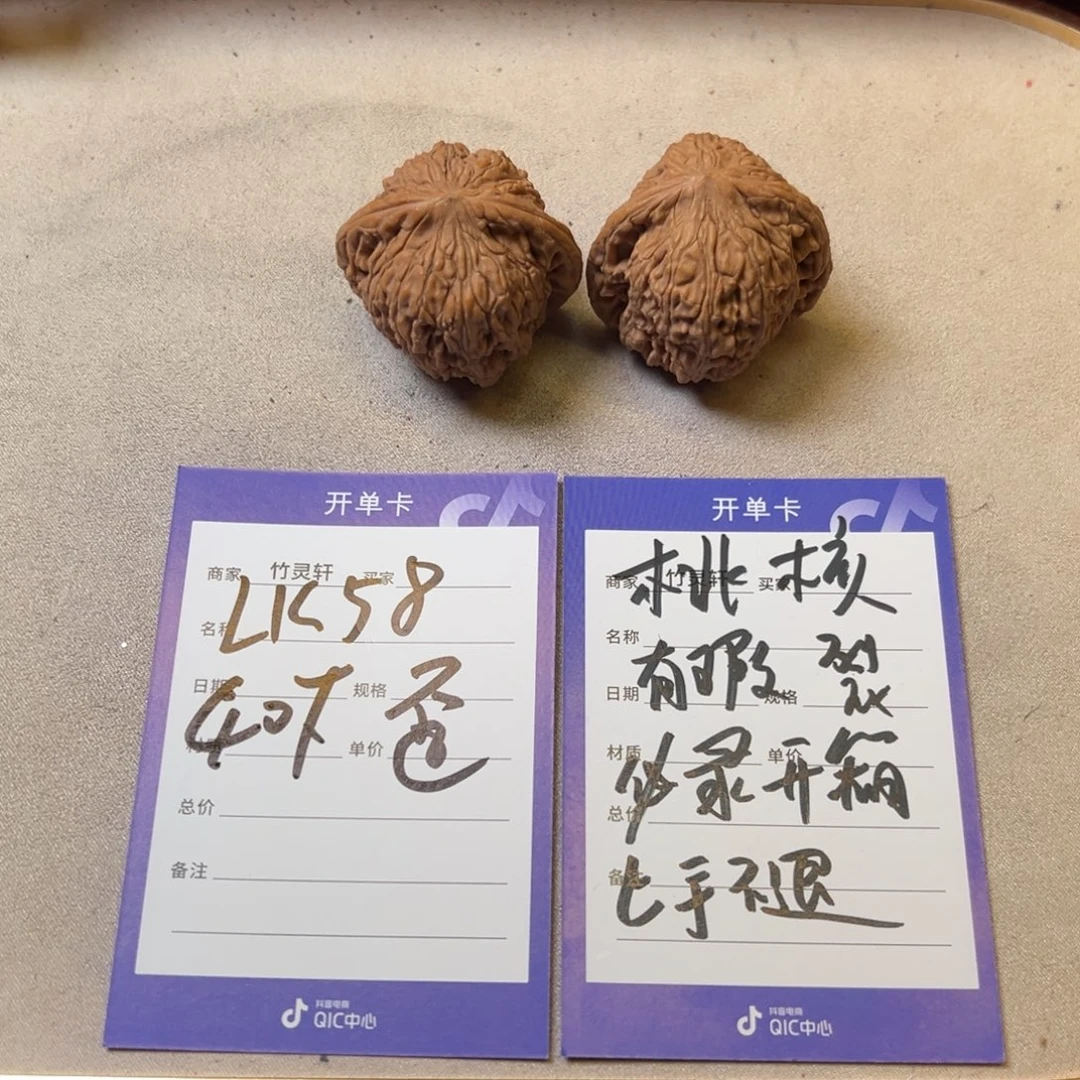 开单卡
商家 竹灵轩 买家
LK58
名称
日期 规格
40下 歪
材质 单价
总价
备注
抖音电商
QIC中心
开单卡
商家 竹灵轩 买家
桃核
名称
有瑕 裂
日期 规格
材质 单价
必录开箱
总价
备注
上手不退
抖音电商
QIC中心